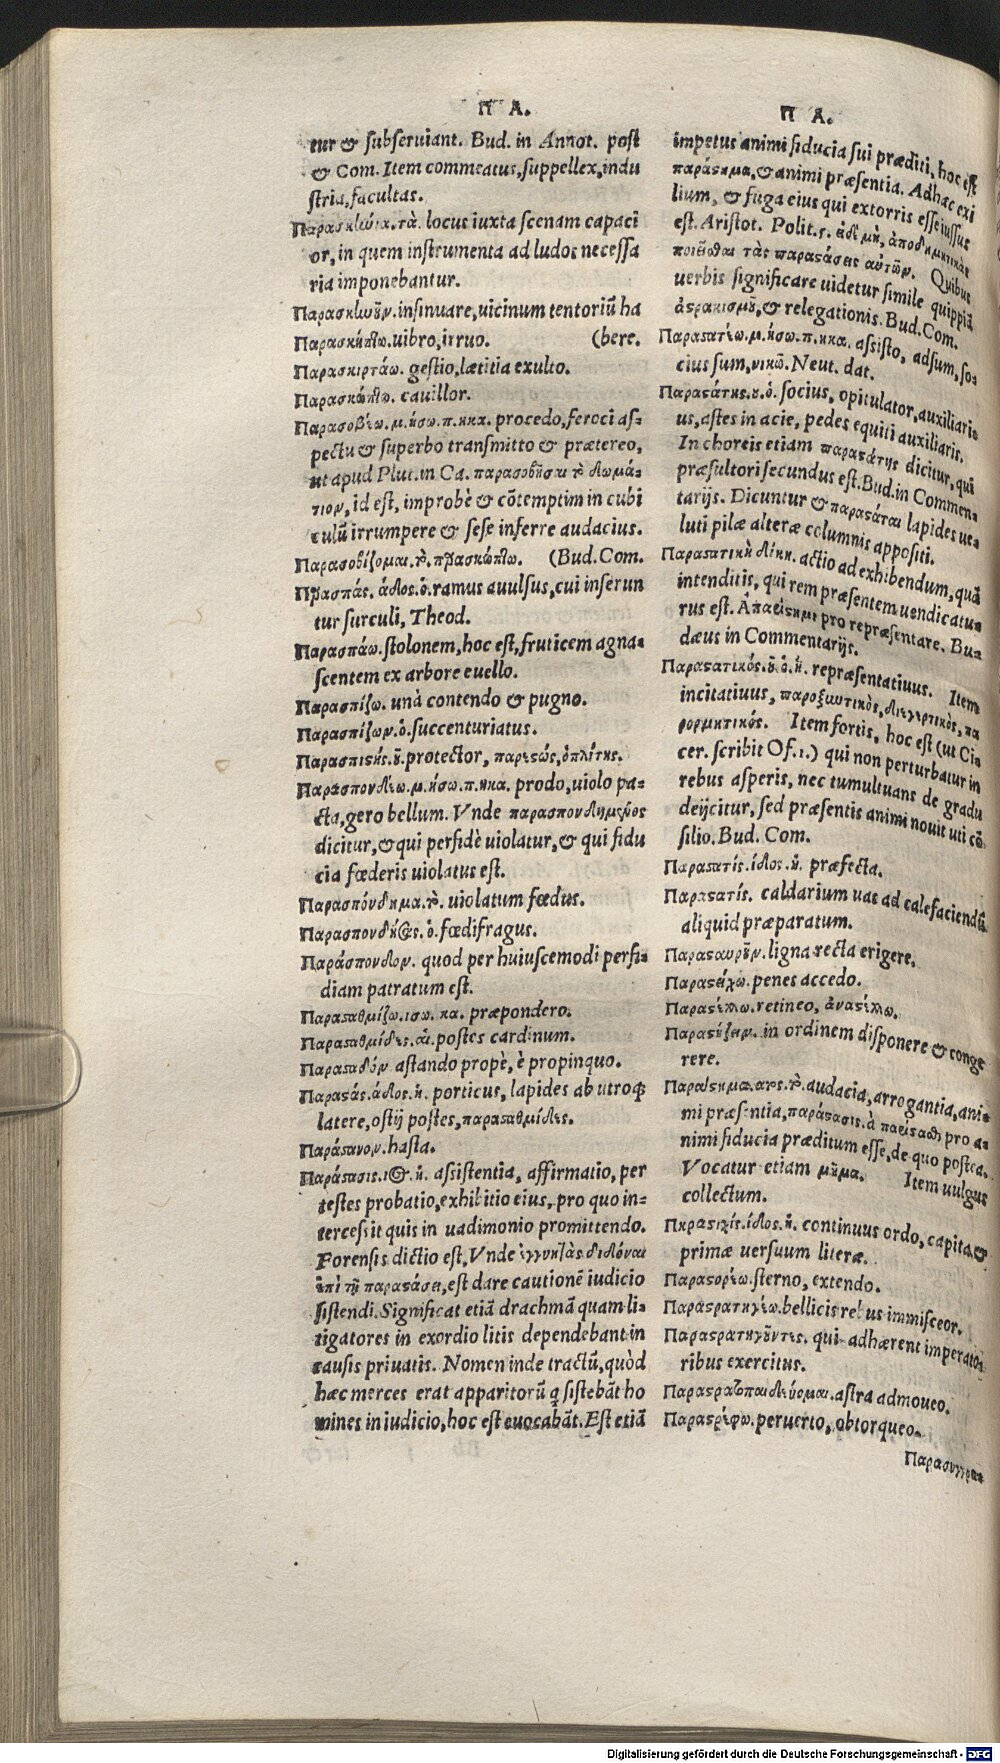 Π Α.
tur & subseruiant. Bud. in Annot. post
& Com. Item commeatus, suppellex, indu
stria, facultas.
Παρασκΐωια. τὰ. locus iuxta scenam capaci
or, in quem instrumenta ad ludos necessa
ria imponebantur.
Παρασκΐωοῦν. insinuare, uicinum tentoriũ ha
Παρασκήπτω. uibro, irruo. (bere.
Παρασκιρτάω. gestio, lætitia exulto.
Παρασκώπτω. cauillor.
Παρασοβέω. μ. ήσω. π. ηκα. procedo, feroci as-
pectu & superbo transmitto & prætereo,
ut apud Plut. in Ca. παρασοβῆσαι τὸ δωμά-
τιον, id est, improbè & cõtemptim in cubi
culũ irrumpere & sese inferre audacius.
Παρασοβίζομαι. τὸ. παρασκώπτω. (Bud. Com.
Παρασπάς. άδος. ὁ. ramus auulsus, cui inserun
tur surculi, Theod.
Παρασπάω. stolonem, hoc est, fruticem agna-
scentem ex arbore euello.
Παρασπίζω. unà contendo & pugno.
Παρασπίζων. ὁ. succenturiatus.
Παρασπιστής. οῦ. protector, παρεστώς, ὁπλίτης.
Παρασπονδέω. μ. ήσω. π. ηκα. prodo, uiolo pa-
cta, gero bellum. Vnde παρασπονδημένος
dicitur, & qui perfidè uiolatur, & qui fidu
cia fœderis uiolatus est.
Παρασπόνδημα. τὸ. uiolatum fœdus.
Παρασπονδητὸς. ὁ. fœdifragus.
Παράσπονδον. quod per huiuscemodi perfi-
diam patratum est.
Παρασταθμίζω. ισω. κα. præpondero.
Παρασταθμίδες. αἱ. postes cardinum.
Παρασταδόν astando propè, è propinquo.
Παραστάς. άδος. ἡ. porticus, lapides ab utroq;
latere, ostij postes, παρασταθμίδες.
Παράστανον. hasta.
Παράστασις. ιος. ἡ. assistentia, affirmatio, per
testes probatio, exhibitio eius, pro quo in-
tercessit quis in uadimonio promittendo.
Forensis dictio est, Vnde ἐγγυητὰς διδόναι
ἐπὶ τῇ παραστάσει, est dare cautionẽ iudicio
sistendi. Significat etiã drachmã quam li-
tigatores in exordio litis dependebant in
causis priuatis. Nomen inde tractũ, quòd
hæc merces erat apparitorũ q̃ sistebãt ho
mines in iudicio, hoc est euocabãt. Est etiã
Π Α.
impetus animi fiducia sui præditi, hoc est
παράστημα, & animi præsentia. Adhæc exi
lium, & fuga eius qui extorris esse iussus
est. Aristot. Polit. ε. εἰ δὲ μὴ, ἀποδημητικὰς
ποιεῖσθαι τὰς παραστάσεις αὐτῶν. Quibus
uerbis significare uidetur simile quippiã
ὀστρακισμοῦ, & relegationis. Bud. Com.
Παραστατέω. μ. ήσω. π. ηκα. assisto, adsum, so-
cius sum, νικῶ. Neut. dat.
Παραστάτης. ου. ὁ. socius, opitulator, auxiliari-
us, astes in acie, pedes equiti auxiliaris.
In choreis etiam παραστάτης dicitur, qui
præsultori secundus est. Bud. in Commen-
tarijs. Dicuntur & παραστάται lapides ue-
luti pilæ alteræ columnis appositi.
Παραστατικὴ δίκη. actio ad exhibendum, quã
intenditis, qui rem præsentem uendicatu-
rus est. Απαείστημι pro repræsentare. Bu-
dæus in Commentarijs.
Παραστατικός. οῦ. ὁ. ἡ. repræsentatiuus. Item
incitatiuus, παροξυντικὸς, διεγερτικὸς, πα
ρορμητικός. Item fortis, hoc est (ut Ci-
cer. scribit Of. 1.) qui non perturbatur in
rebus asperis, nec tumultuans de gradu
deijcitur, sed præsentis animi nouit uti cõ
silio. Bud. Com.
Παραστατίς. ίδος. ἡ. præfecta.
Παραστατίς. caldarium uas ad calefaciendũ
aliquid præparatum.
Παρασταυροῦν. ligna recta erigere.
Παραστείχω. penes accedo.
Παραστέλλω. retineo, ἀναστέλλω.
Παραστίζειν. in ordinem disponere & conge
rere.
Παράστημα. ατος. τὸ. audacia, arrogantia, ani-
mi præsentia, παράστασις. ὰ παείσταθι pro a-
nimi fiducia præditum esse, de quo postea.
Vocatur etiam μῆμα. Item uulgus
collectum.
Παραστιχίς. ίδος. ἡ. continuus ordo, capita, &
primæ uersuum literæ.
Παραστορέω. sterno, extendo.
Παραστρατηγέω. bellicis rebus immisceor.
Παραστρατηγοῦντες. qui adhærent imperato-
ribus exercitus.
Παραστρατοπαιδεύομαι. astra admoueo.
Παραστρέφω. peruerto, obtorqueo.
Παρασυγγρα-
Digitalisierung gefördert durch die Deutsche Forschungsgemeinschaft - DFG